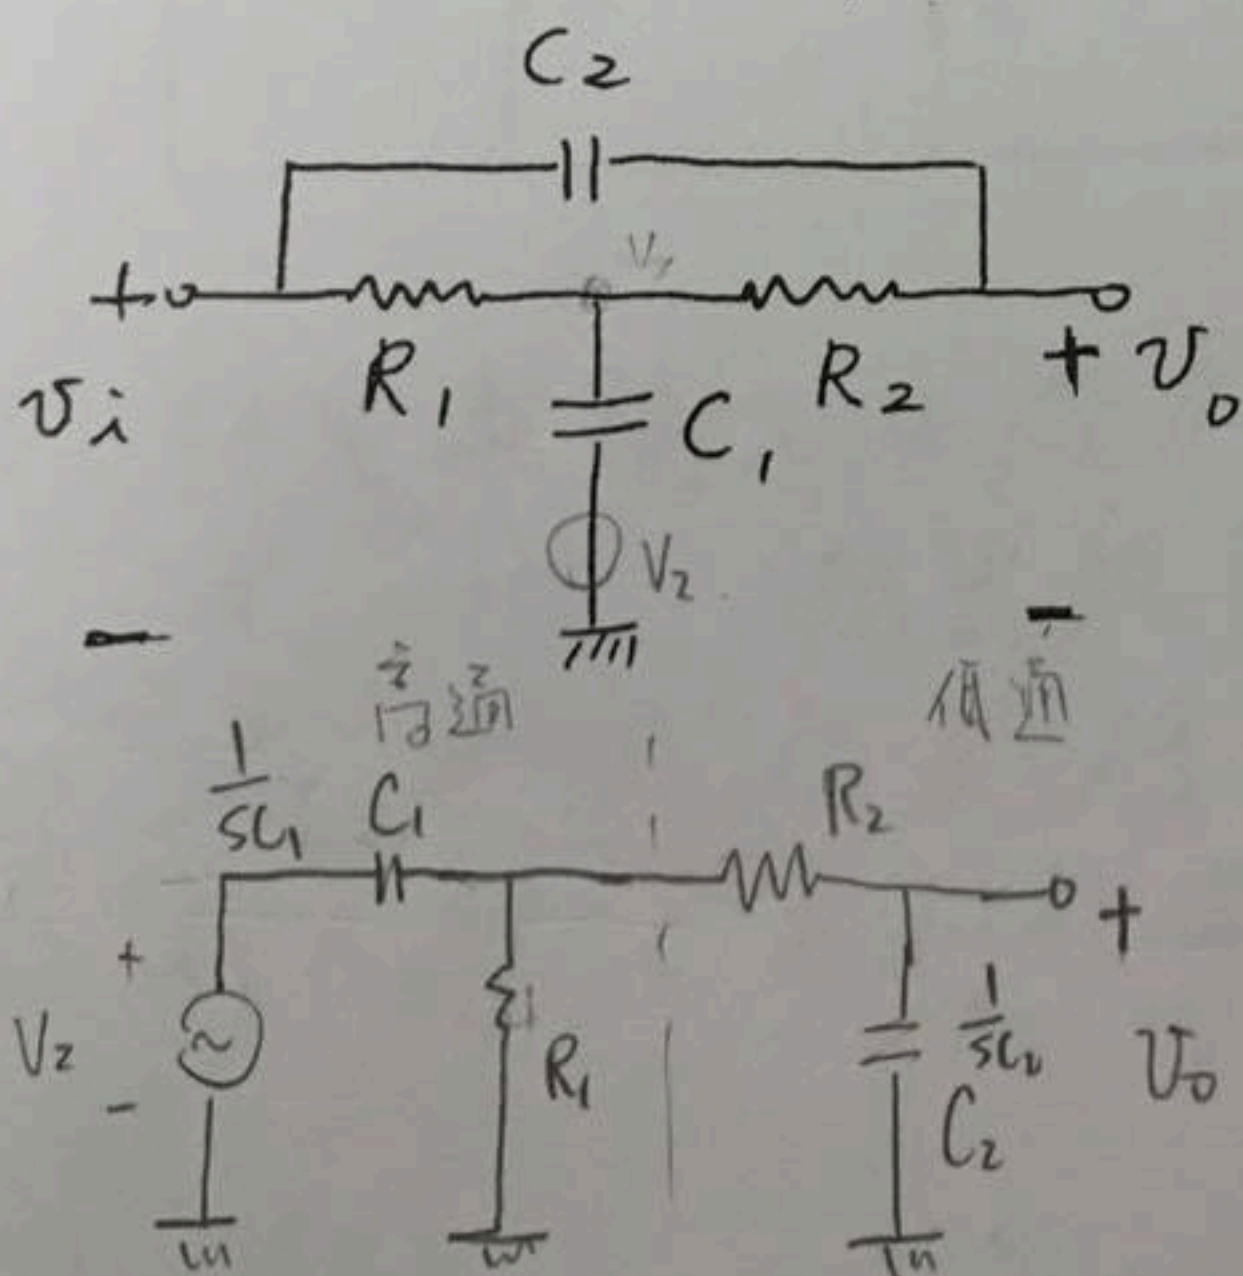 C2
V1
+
+
vi
R1
C1
R2
vo
V2
-
-
高通
低通
1/sC1
C1
R2
+
+
V2
-
R1
1/sC2
C2
vo